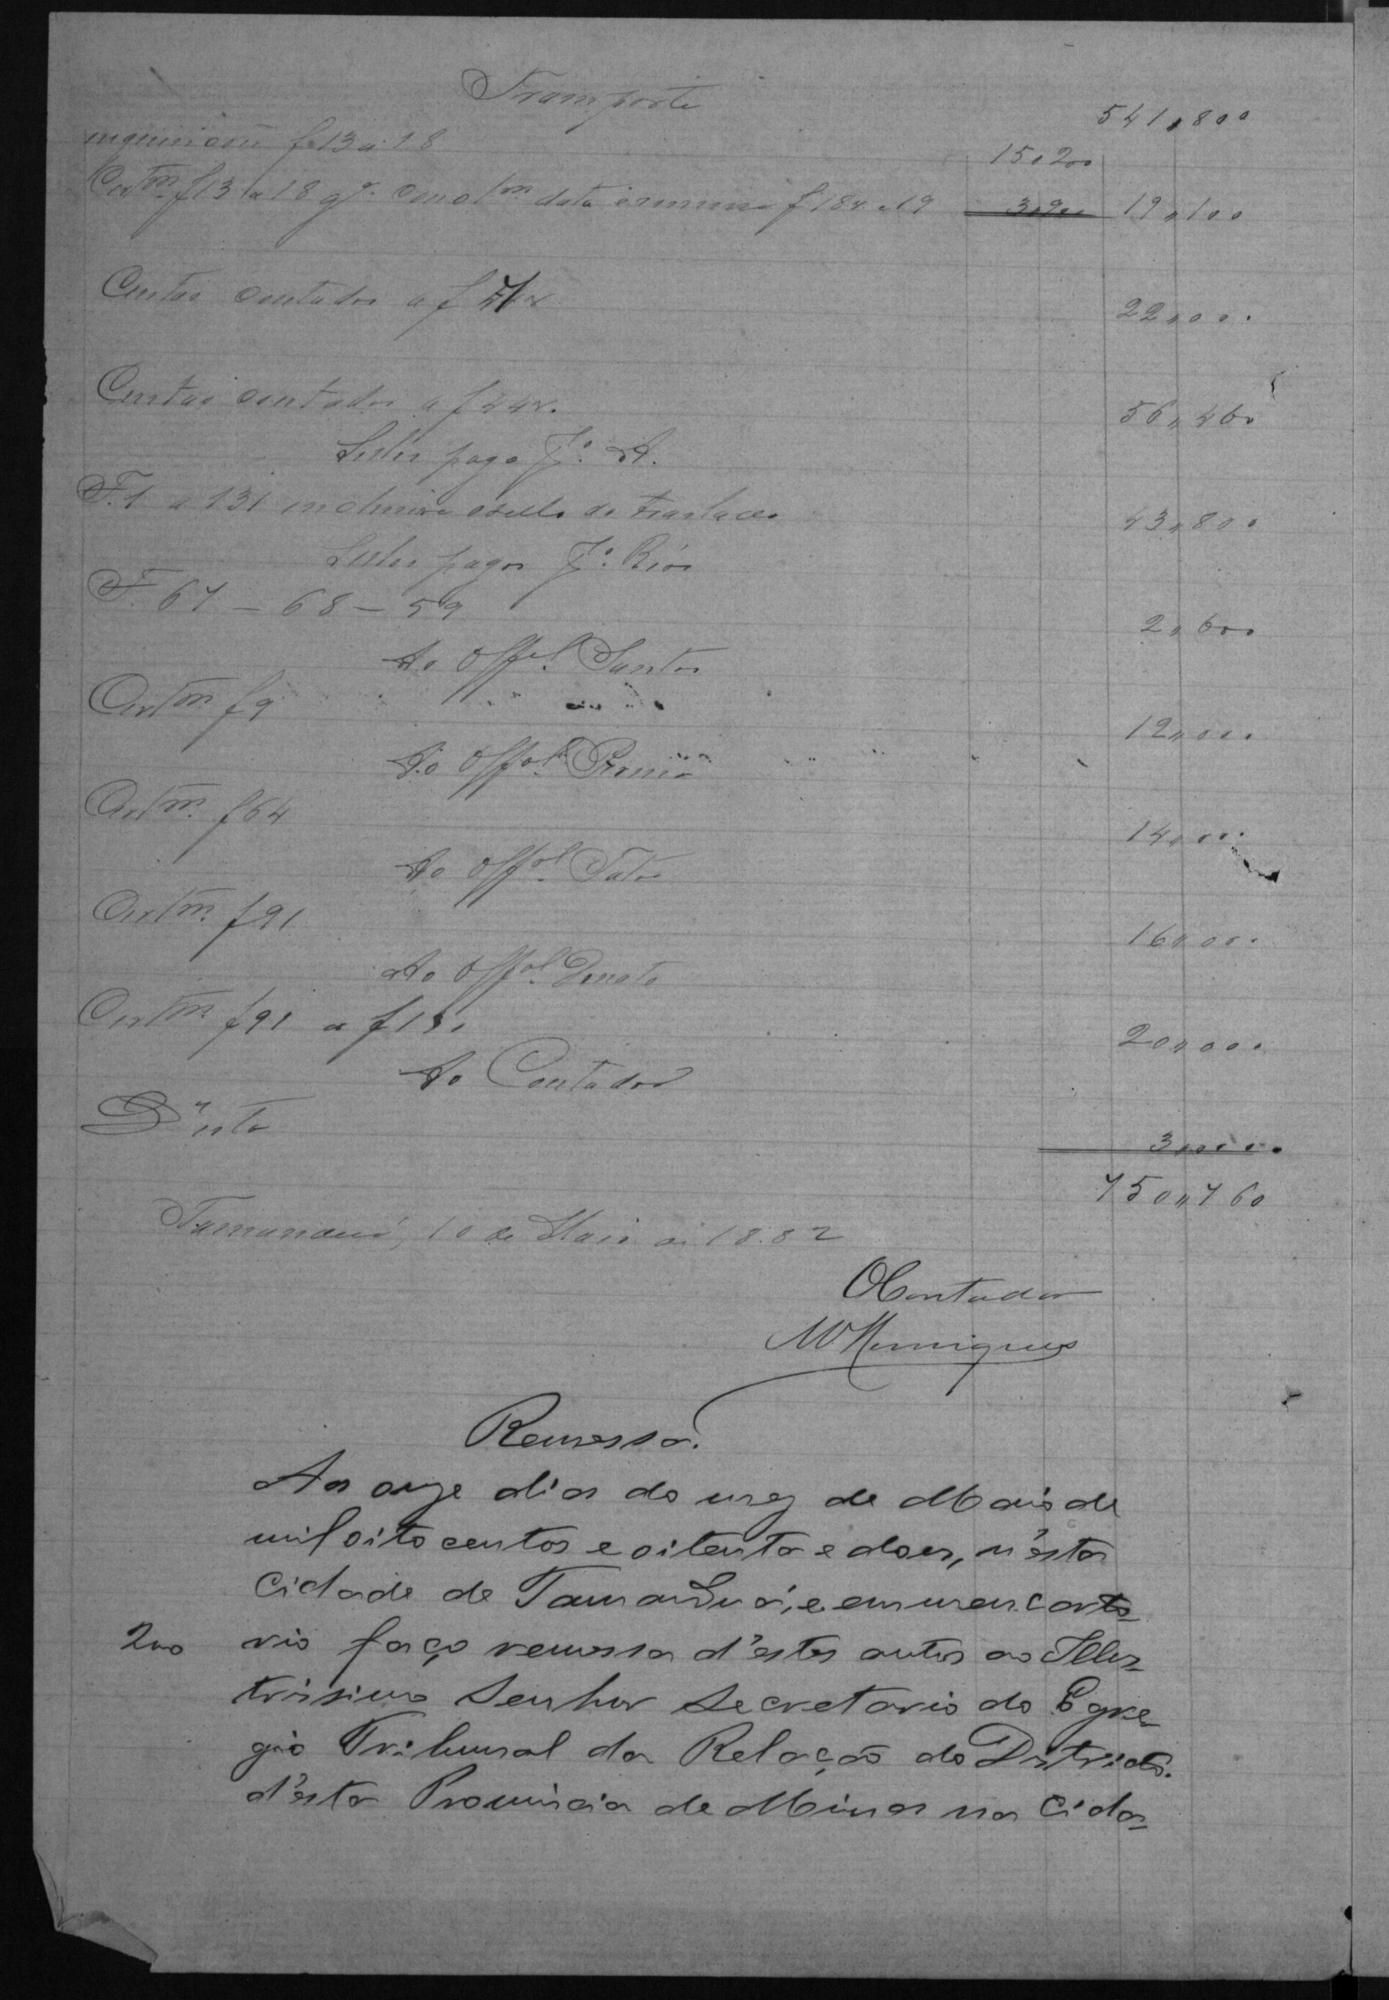 Transporte
541,800
f 13 a 18
15,200
Certm. f 13 a 18 f 18v a 19 3,900 19,100
Custas contadas a f 22,000
Custas contadas a f 44v. 56,460
Sellos pago Jº. A.
F. 1 a 131 inclusive o sello do traslado 43,800
Sellos pagos Jº. Rios
F. 67 — 68 — 59 2,600
Ao Offal. Santos
Certm f 9 12,000
Ao Offal.
Certm. f 64 14,000
Ao Offal.
Certm. f 91 16,000
Ao Offal. Donato
Certm. f 91 a f 20,000
Ao Contador
D'esta 3,000
750,760
Tamanduá, 10 de Maio de 1882
O Contador
MHenriques
Remessa.
Aos onze dias do mez de Maio de
mil oito centos e oitenta e dous, n'esta
Cidade de Tamanduá, e em meu carto-
200 rio faço remessa d'estes autos ao Illus-
trissimo Senhor Secretario do Egre-
gio Tribunal da Relação do Districto
d'esta Provincia de Minas na Cida-